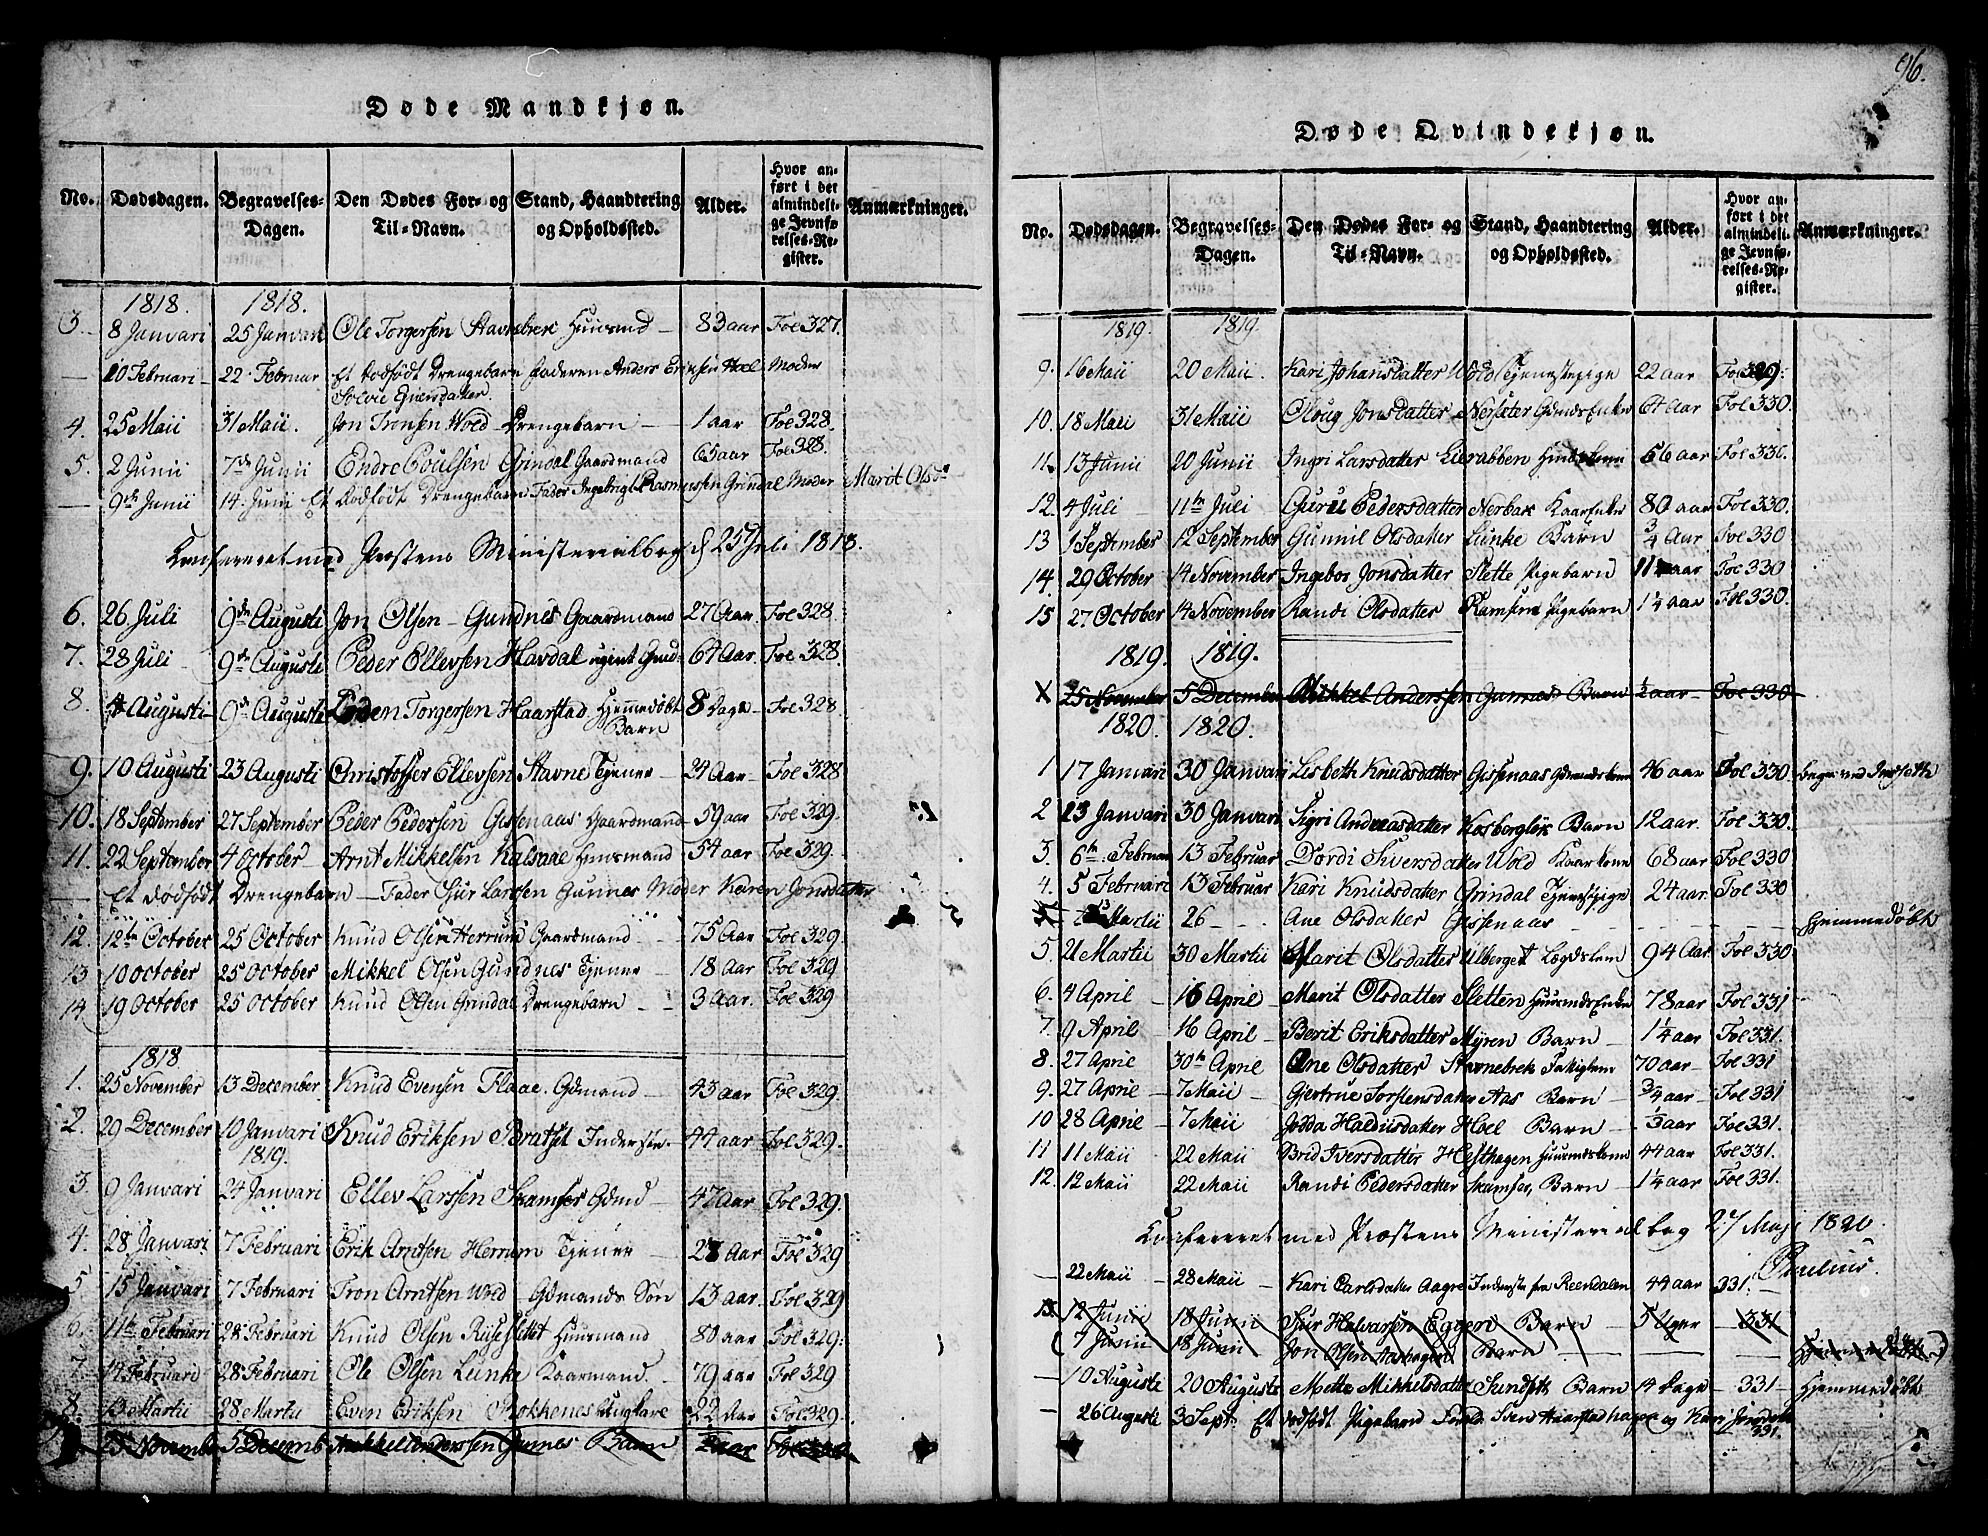 96.
Døde Mandkjøn.
No. Dødsdagen. Begravelses-Dagen. Den Dødes For- og Til-Navn. Stand, Haandtering og Opholdssted. Alder. Hvor anført i det almindelige Jevnførelses-Register. Anmærkninger.
1818. 1818.
3. 8 Janvari 25 Janvari Ole Torgersen Stavnebreri Huusmd 83 aar Fol 327.
10 Februari 22 Februar Et dodfödt Drengebarn Faderen Anders Hoel Moder
Solvie
4. 25 Maii 31 Maii. Jon Tronsen Wold Drengebarn 1 aar Fol 328.
5. 2 Junii 7de Junii Endre Poulsen Grindal Gaardmand 65 aar Fol 328.
9de Junii 14 Junii Et Dodfödt Drengebarn Fader Ingebrigt Rasmussen Grindal Moder Marit Olsd
Confereret med Provstens Ministerialbog d 25 Juli 1818.
6. 26 Juli 9de Augusti Jon Olsen Gundnes Gaardmand 27 Aar Fol 328
7. 28 Juli 9de Augusti Peder Ellevsen Havdal ugivt 64 Aar. Fol 328
8. 4 Augusti 9de Augusti Loden Torgersen Haarstad Hjemmedöbt Barn 8 Dage Fol 328
9. 10 Augusti 23 Augusti Christoffer Ellevsen Stavne Tjener 24 Aar Fol 328
10. 18 September 27 September Peder Pedersen Gissenaas Gaardmand 59 aar Fol 329.
11. 22 September 4 October Arnt Mikkelsen Huusmand 54 aar Fol 329.
Et Dodfödt Drengebarn Fader Siur Larssen Gunnes Moder Karen Jonsdatter
12. 12te October 25 October Knud Olsen Herrum Gaardmand 75 Aar Fol 329.
13 10 October 25 October Mikkel Olsen Gundnes Tjener 18 Aar Fol 329
14 19 October 25 October Knud Olsen Grindal Drengebarn 3 Aar. Fol 329
1818.
1. 25 November 13 December Knud Evensen Flaae Gdmand 43 aar Fol 329.
2. 29 December 10 Janvari 1819. Knud Eriksen Bratset 44 aar Fol 329.
3. 9 Janvari 24 Janvari Ellev Larssen Skamfer Gdmd 47 Aar Fol 329.
4. 28 Janvari 7 Februari Erik Arntsen Herrum Tjener 27 Aar Fol 329
5 15 Janvari 7 Februari Tron Arntsen Wold Gdmands Sön 13 aar Fol 329
6. 11te Februari 28 Februari Knud Olsen Huusmand 80 aar Fol 329.
7. 14 Februari 28 Februari Ole Olsen Lunke Kaarmand. 79 aar Fol 329
8. 13 Martii 28 Martii Even Eriksen Stokkenes Ungkarl 22 Aar Fol 329.
25 November 5 Decemb Mikkel Anderssen Gunnes Barn
Døde Qvindekjøn.
No. Dødsdagen. Begravelses-Dagen. Den Dødes For- og Til-Navn. Stand, Haandtering og Opholdssted. Alder. Hvor anført i det almindelige Jevnførelses-Register. Anmærkninger.
1819. 1819.
9. 16 Maii 20 Maii. Kari Johansdatter Wold Tjenestepige 22 aar Fol 329.
10. 18 Maii 31 Maii Oloug Jonsdatter Nersleter Gdmds Enke 64 Aar Fol 330.
11. 13 Junii 20 Junii Ingri Larsdatter Lierabben 56 aar Fol 330.
12. 4 Juli 11te Juli Guru Pedersdatter Nerbak KaarEnke 80 aar Fol 330.
13 1 September 12 September Gunnil Olsdatter Lunke Barn 3/4 Aar Fol 330
14. 29 October 14 November Ingebor Jonsdatter Slette Pigebarn 11 aar Fol 330
15 27 October 14 November Randi Olsdatter Ramsem Pigebarn 1 1/4 aar Fol 330.
1819. 1819.
25 November 5 December Mikkel Anderssen Gunnes Barn 1/2 aar Fol 330
1820. 1820.
1 17 Janvari 30 Janvari Lisbeth Knudsdatter Gissenaas Gdmandskone 46 aar Fol 330. begr. ved Indseth
2 23 Janvari 30 Janvari Sigri Andreasdatter Barn 12 aar. Fol 330.
3. 6te Februar 13 Februar Dordi Siversdatter Wold Kaarkone 68 aar Fol 330
4. 5 Februari 13 Februar Kari Knudsdatter Grindal Tjenestpige 24 aar Fol 330
13 Martii 26 Ane Olsdatter Gissenaas Hjemmedöbt
5. 21 Martii 30 Martii Marit Olsdatter Ulberget Lægdslem 94 Aar Fol 330
6. 4 April 16 April Marit Olsdatter Sletten HuusmdsEnke 78 aar Fol 331
7. 9 April 16 April Berit Eriksdatter Myren Barn 1 1/4 aar Fol 331.
8. 27 April 30te April Ane Olsdatter Stavnebrek Fatiglem 70 aar Fol 331
9. 27 April 7 Maii Gjertrue Torstensdatter Aas Barn 3/4 aar Fol 331
10 28 April 7 Maii Jodda Haldusdatter Hoel Barn 1/3 aar Fol 331.
11 11 Maii 22 Maii Brid Iversdatter Hesthagen Huusmdskone 44 aar Fol 331.
12. 12 Maii 22 Maii Randi Pedersdatter Skamfer, Barn 1 1/4 aar Fol 331.
Confereret med Provstens Ministerial bog 27 May 1820.
22 Maii 28 Maii Kari Carlsdatter Aagre Inderste fra Reendalen 44 aar 331.
13. 12 Junii 18 Junii Siur Halvarsen Eggen Barn 5 Uger 331
7 Junii 18 Junii Jon Olsen Aashagen Barn Hjemmedöbt
10 Augusti 20 Augusti Mette Mikkelsdatter Sundset Barn 14 Dage 331 Hjemmedöbt
26 Augusti 3 Sept. Et dodfödt Pigebarn Sven Haarstadhagen og Kari Jonsdatter
331.